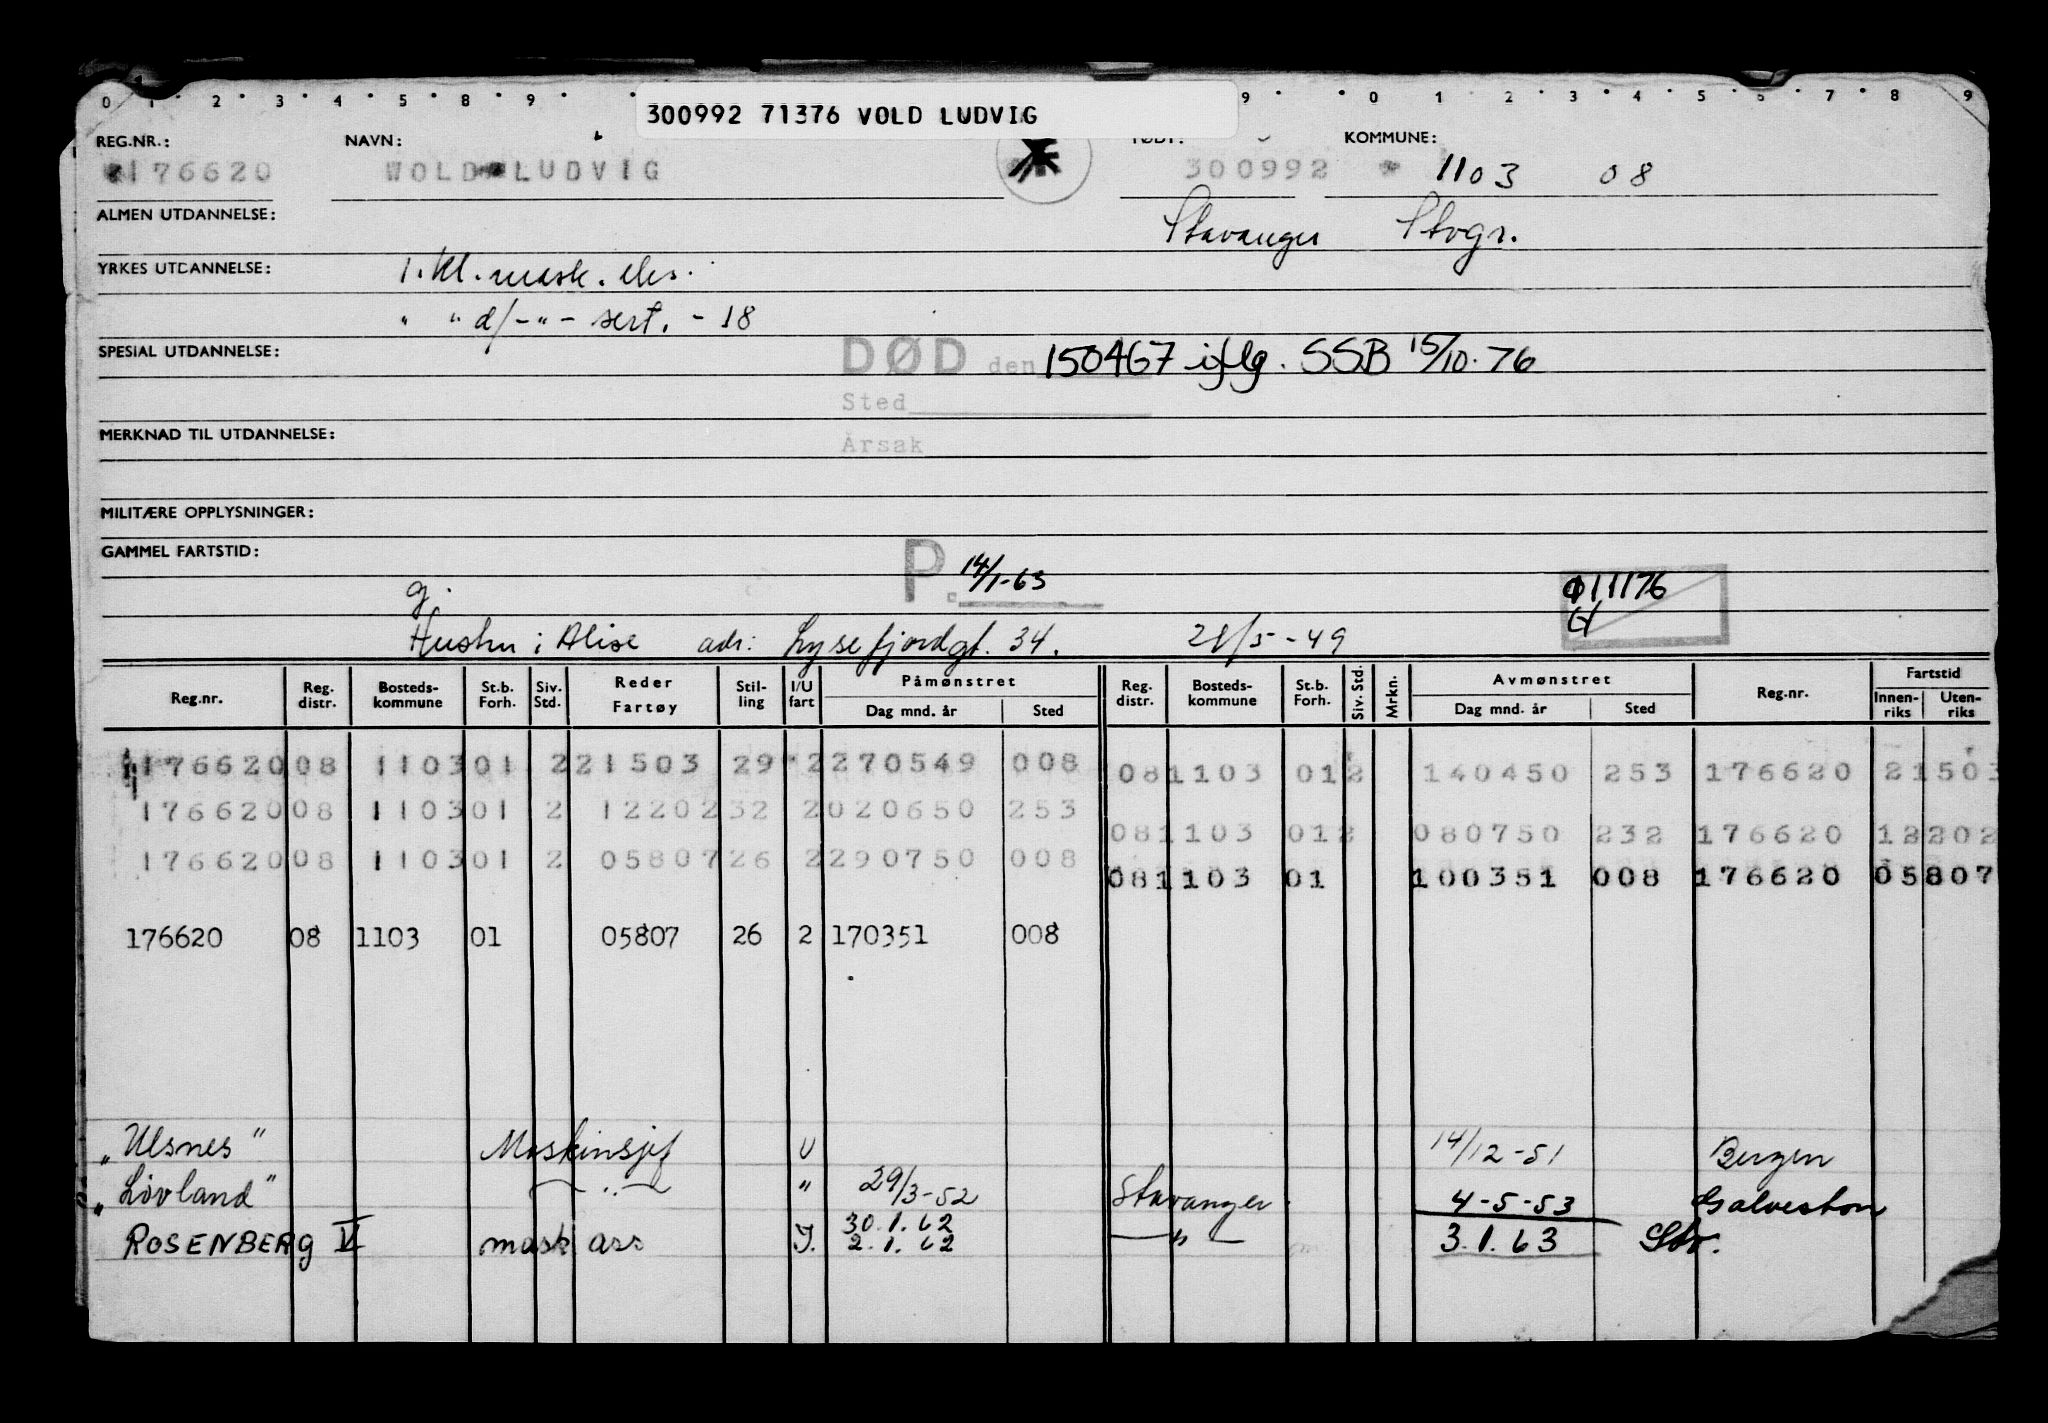 0 1 2 3 4 5 8 9 9 0 1 2 3 4 5 6 7 8 9
300992 71376 VOLD LUDVIG
REG.NR.: NAVN: FØDT: KOMMUNE:
176620 WOLD LUDVIG 300992 1103 08
ALMEN UTDANNELSE: Stavanger Stvgr.
YRKES UTDANNELSE: 1. kl. mask. eks.
" " d/-"- sert. - 18
SPESIAL UTDANNELSE: DØD den 150467 iflg. SSB 15/10. 76
Sted
MERKNAD TIL UTDANNELSE: Årsak
MILITÆRE OPPLYSNINGER:
GAMMEL FARTSTID: P. 14/1-63
g. 011176
Hustru: Alise adr: Lysefjordgt. 34. 28/5-49
Reg.nr. Reg. distr. Bosteds- kommune St.b. Forh. Siv. Std. Reder Fartøy Stil- ling I/U fart Påmønstret Dag mnd. år Sted Reg. distr. Bosteds- kommune St.b. Forh. Siv. Std. Mrkn. Avmønstret Dag mnd. år Sted Reg.nr. Fartstid Innen- riks Uten- riks
176620 08 1103 01 2 21503 29 2 270549 008 08 1103 01 2 140450 253 176620 21503
176620 08 1103 01 2 12202 32 2 020650 253 08 1103 01 2 080750 232 176620 12202
176620 08 1103 01 2 05807 26 2 290750 008 08 1103 01 100351 008 176620 05807
176620 08 1103 01 05807 26 2 170351 008
"Ulsnes" Maskinsjef U 14/12-51 Bergen
"Lovland" — " — " 29/3-52 Stavanger. 4-5-53 Galveston
30.1.62
ROSENBERG V mask ass I. 2.1.62 — " — 3.1.63 Stv.